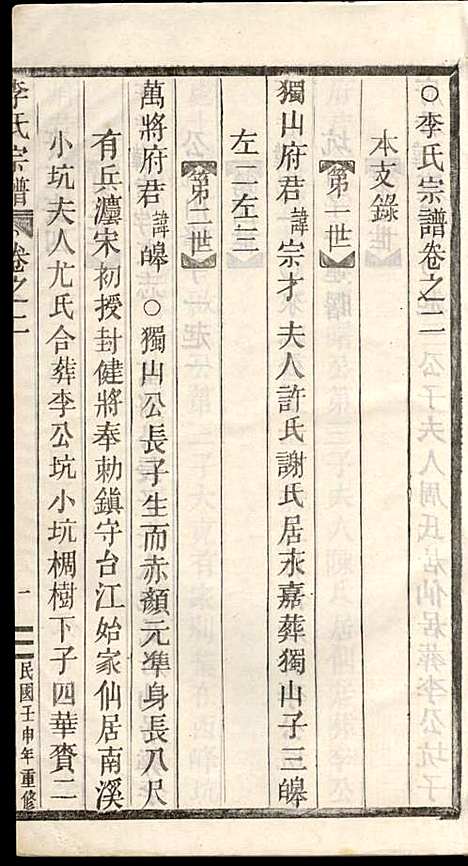 ○李氏宗譜卷之二
本支錄
第一世
獨山府君諱宗才夫人許氏謝氏居永嘉葬獨山子三皞
左二左三
第二世
萬將府君諱皞○獨山公長子生而赤顏元準身長八尺
有兵灋宋初授封健將奉勅鎮守台江始家仙居南溪
小坑夫人尤氏合葬李公坑小坑椆樹下子四華賚二
李氏宗譜 卷之二 一 民國壬申年重修